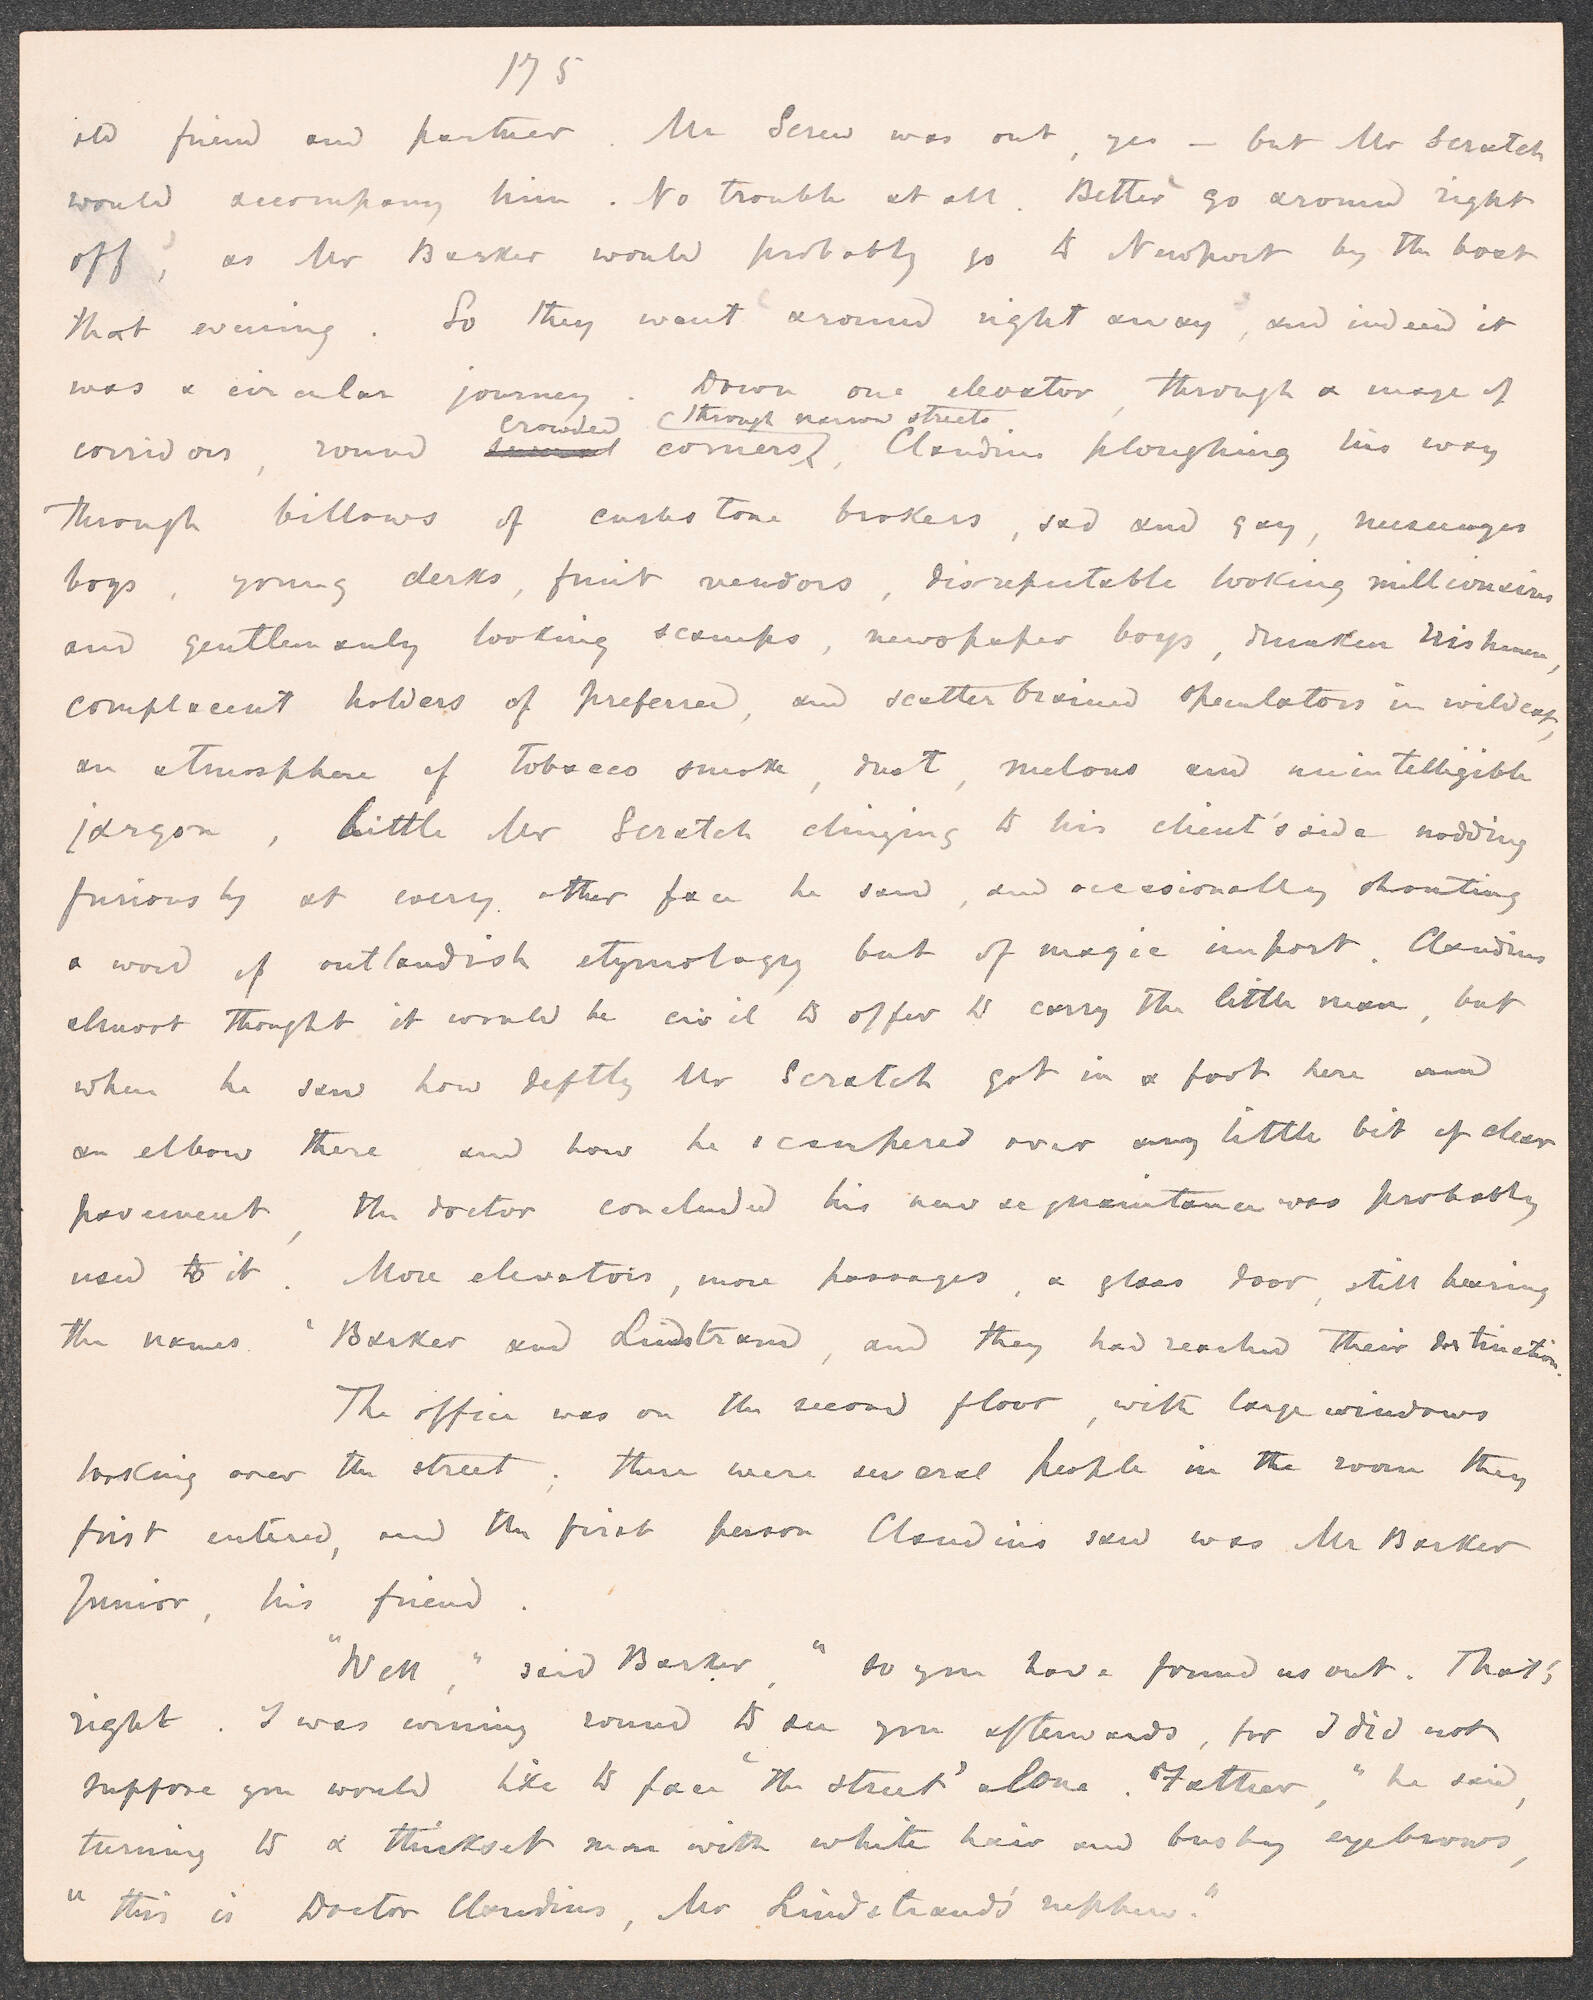 175
old friend and partner. Mr Screw was out, yes – but Mr Scratch
would accompany him. No trouble at all. Better go around right
off, as Mr Barker would probably go to Newport by the boat
that evening. So they went around right away, and indeed it
was a circular journey. Down one elevator, through a maze of
crowded through narrow streets
corridors, round several corners, Claudius ploughing his way
through billows of curbstone brokers, sad and gay, messenger
boys, young clerks, fruit vendors, disreputable looking millionaires
and gentlemanly looking scamps, newspaper boys, drunken Irishmen,
complacent holders of preferred, and scatterbrained speculators in wildcat,
an atmosphere of tobacco smoke, dust, melons and unintelligible
jargon, little Mr Scratch clinging to his client's side nodding
furiously at every other face he saw, and occasionally shouting
a word of outlandish etymology but of magic import. Claudius
almost thought it would be civil to offer to carry the little man, but
when he saw how deftly Mr Scratch got in a foot here and
an elbow there and how he scampered over any little bit of clear
pavement, the doctor concluded his new acquaintance was probably
used to it. More elevators, more passages, a glass door, still bearing
the names 'Barker and Lindstrand, and they had reached their destination.
The office was on the second floor, with large windows
looking over the street; there were several people in the room they
first entered, and the first person Claudius saw was Mr Barker
Junior, his friend.
"Well," said Barker, "so you have found us out. That's
right. I was coming round to see you afterwards, for I did not
suppose you would like to face 'the street' alone. "Father," he said,
turning to a thickset man with white hair and bushy eyebrows,
"this is Doctor Claudius, Mr Lindstrand's nephew."